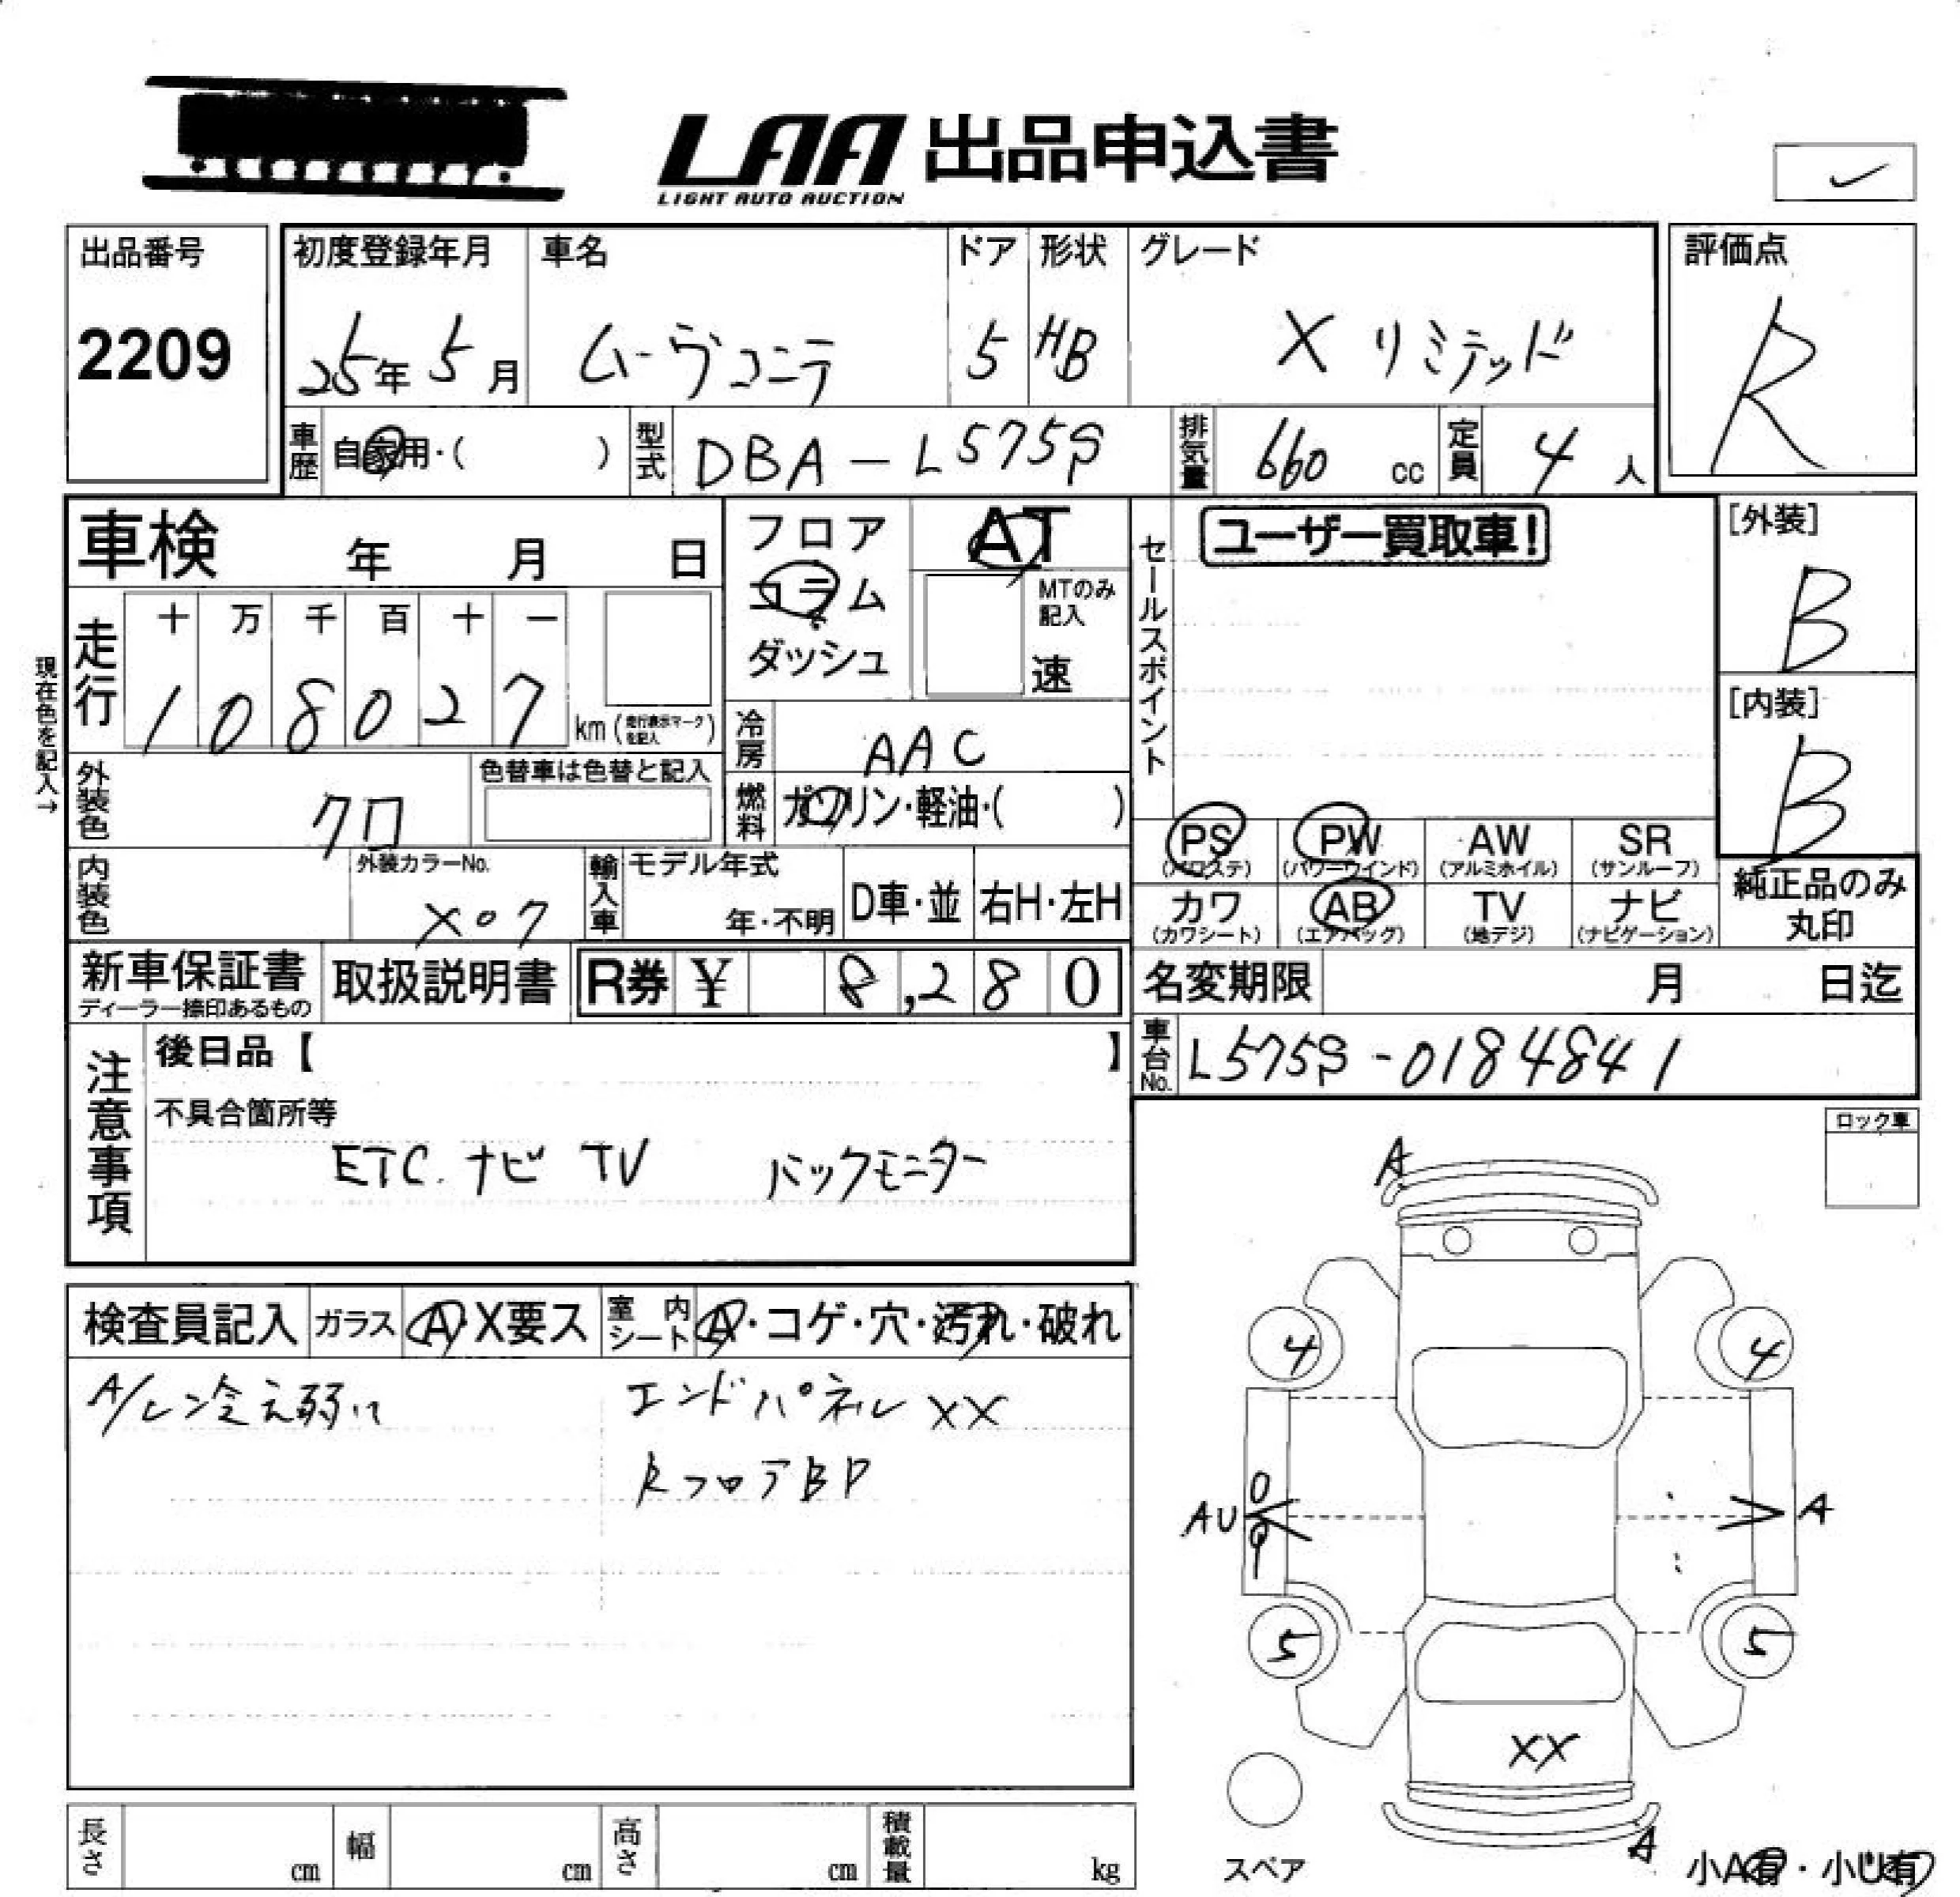 LAA 出品申込書
LIGHT AUTO AUCTION
出品番号
2209
初度登録年月
25年 5月
車名
ムーヴコンテ
ドア
5
形状
HB
グレード
X リミテッド
評価点
R
車歴 自家用・( )
型式 DBA-L575S
排気量 660 cc
定員 4 人
車検 年 月 日
フロア
コラム
ダッシュ
AT
MTのみ記入
速
セールスポイント
ユーザー買取車!
[外装]
B
[内装]
B
現在色を記入→
走行
十 万 千 百 十 一
1 0 8 0 2 7 km (走行表示マークを記入)
冷房 AAC
外装色 クロ
色替車は色替と記入
燃料 ガソリン・軽油・( )
PS (パワステ)
PW (パワーウインド)
AW (アルミホイル)
SR (サンルーフ)
カワ (カワシート)
AB (エアバッグ)
TV (地デジ)
ナビ (ナビゲーション)
純正品のみ丸印
内装色
外装カラーNo.
X07
輸入車
モデル年式
年・不明
D車・並
右H・左H
新車保証書
ディーラー捺印あるもの
取扱説明書
R券 ¥ 8,280
名変期限 月 日迄
車台No. L575S-0184841
注意事項
後日品【 】
不具合箇所等
ETC. ナビ TV バックモニター
ロック車
検査員記入
ガラス A・X要ス
室内シート A・コゲ・穴・汚れ・破れ
A/コン冷え弱い
エンドパネル XX
RフロアBP
A
4 4
AU A
5 5
XX
A
スペア
小A有・小U有
長さ cm
幅 cm
高さ cm
積載量 kg